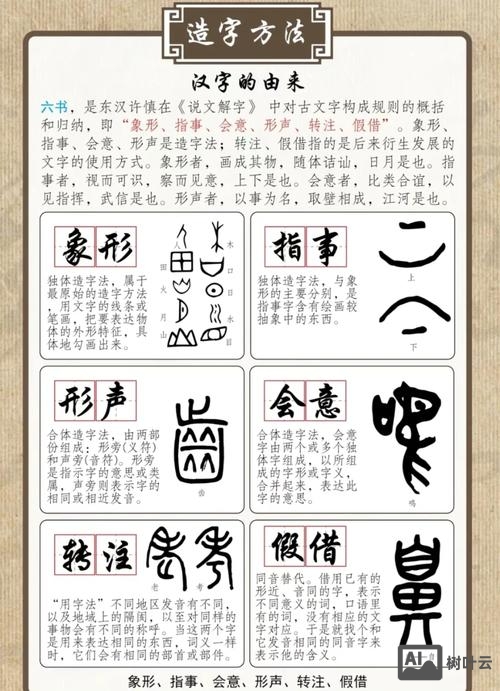 造字方法
汉字的由来
六书，是东汉许慎在《说文解字》中对古文字构成规则的概括
和归纳，即“象形、指事、会意、形声、转注、假借”。象形、
指事、会意、形声是造字法；转注、假借指的是后来衍生发展的
文字的使用方式。象形者，画成其物，随体诘诎，日月是也。指
事者，视而可识，察而见意，上下是也。会意者，比类合谊，以
见指挥，武信是也。形声者，以事为名，取壁相成，江河是也。
象形
独体造字法，属于
最原始的造字方法
，用文字的线条或
笔画，把要表达物
体的外形特征，具
体地勾画出来。
人
木
田
口
日
火
月
水
山
目
指事
独体造字法，与象
形的主要分别，是
指事字含有绘画较
抽象中的东西。
上
下
形声
合体造字法，由两部
份组成：形旁(义符)
和声旁(音符)。形旁
是指示字的意思或类
属，声旁则表示字的
相同或相近发音。
齿
会意
合体造字法，会意字
由两个或多个独体
字组成，以所组成
的字形或字义，
合并起来，表达此
字的意思。
鸣
转注
老
考
“用字法”不同地区发音有不同，
以及地域上的隔阂，以至对同样的
事物会有不同的称呼。当这两个字
是用来表达相同的东西，词义一样
时，它们会有相同的部首或部件。
假借
同音替代。借用已有的
形近、音同的字，表示
不同意义的词，口语里
有的词，没有相应的文
字对应。于是就找个和
它发音相同的同音字来
表示他的含义。
自
AI
树叶云
象形、指事、会意、形声、转注、假借